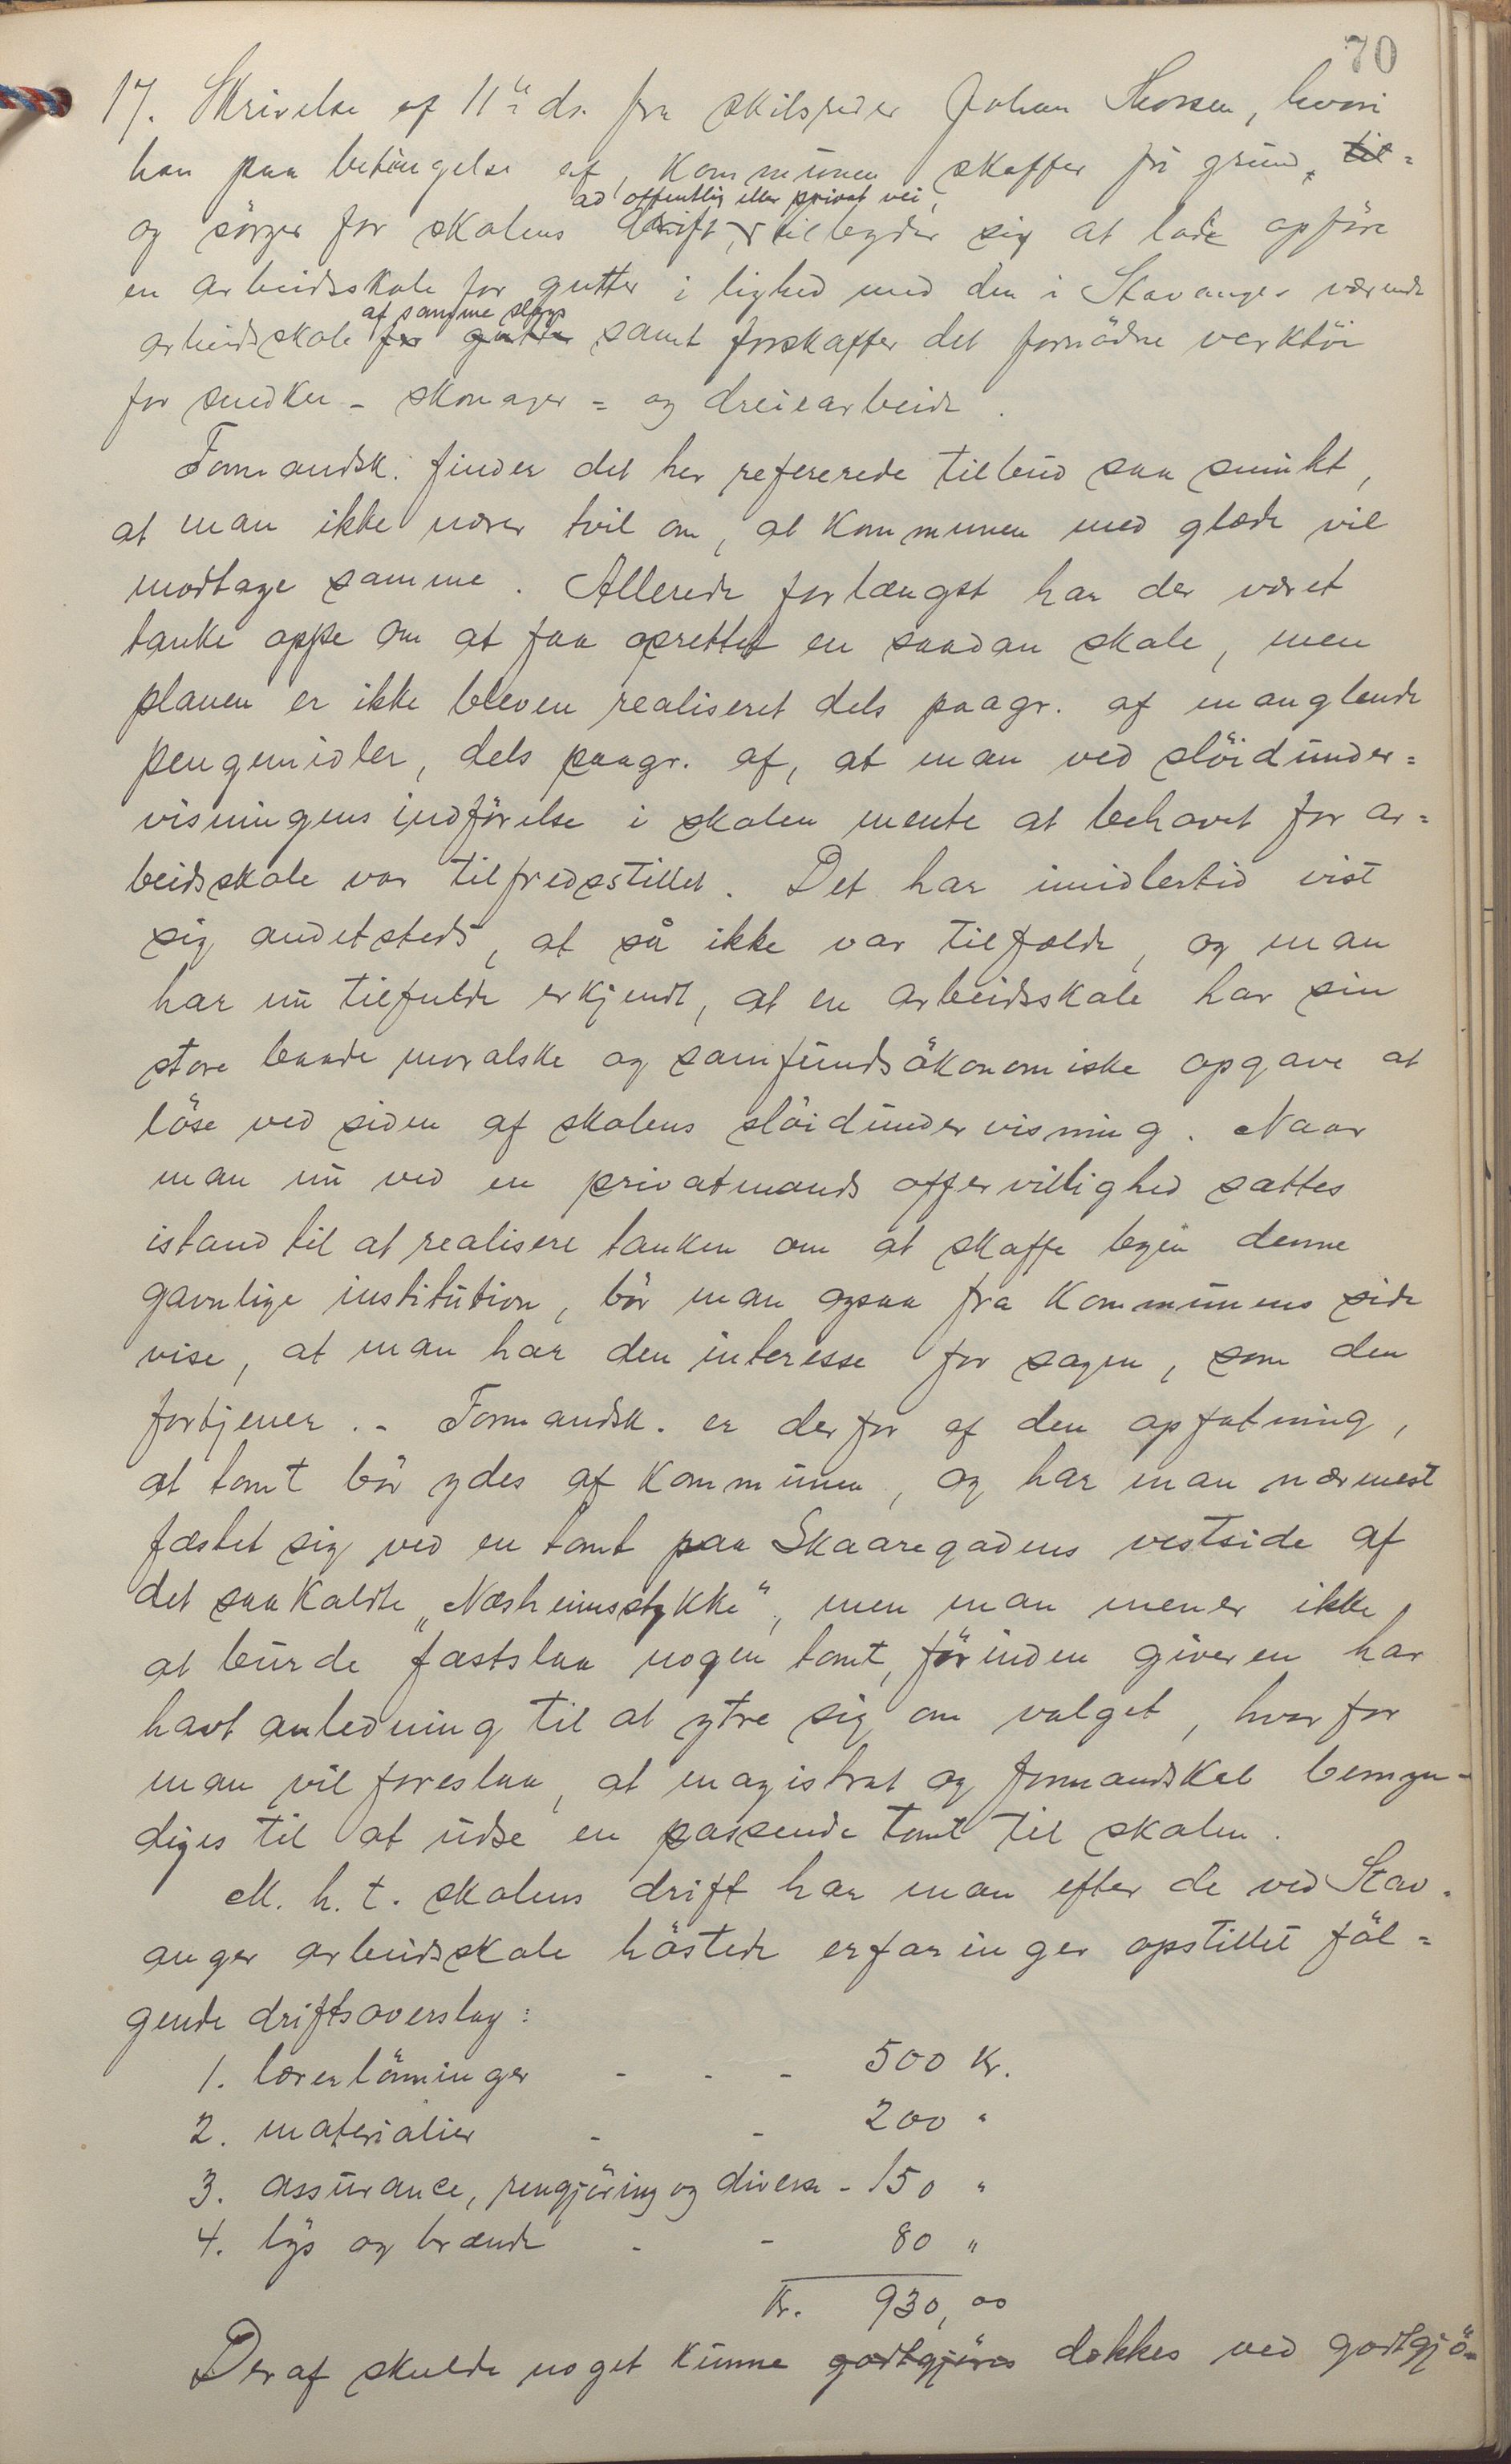 70
17. Skrivelse af 11te ds. fra skibsreder Johan Thorsen, hvori
han paa betingelse af, kommunen skaffer fri grund, til=
ad offentlig eller privat vei,
og sörger for skolens drift, tilbyder sig at lade opföre
en arbeidsskole for gutter i lighed med den i Stavanger værende
af samme slags
arbeidsskole for gutter samt forskaffer det fornödne verktöi
for snedker- skomager= og dreiearbeide.
Formandsk. finder det her refererede tilbud saa smukt,
at man ikke nærer tvil om, at kommunen med glæde vil
modtage samme. Allerede forlængst har der været
tanke oppe om at faa oprettet en saadan skole, men
planen er ikke bleven realiseret dels paagr. af manglende
pengemidler, dels paagr. af, at man ved slöidunder=
visningens indförelse i skolen mente at behovet for ar=
beidsskole var tilfredsstillet. Det har imidlertid vist
sig andetsteds, at så ikke var tilfælde, og man
har nu tilfulde erkjendt, at en arbeidsskole har sin
store baade moralske og samfundsökonomiske opgave at
löse ved siden af skolens slöidundervisning. Naar
man nu ved en privatmands offervillighed sættes
istand til at realisere tanken om at skaffe byen denne
gavnlige institution, bör man ogsaa fra kommunens side
vise, at man har den interesse for sagen, som den
fortjener. - Formandsk. er derfor af den opfatning,
at tomt bör ydes af kommunen, og har man nærmest
fæstet sig ved en tomt paa Skaaregadens vestside af
det saakaldte "Næsheimsstykke", men man mener ikke
at burde fastslaa nogen tomt, förinden giveren har
havt anledning til at ytre sig om valget, hvorfor
man vil foreslaa, at magistrat og formandskab bemyn-
diges til at udse en passende tomt til skolen.
M. h. t. skolens drift har man efter de ved Stav-
anger arbeidsskole höstede erfaringer opstillet föl=
gende driftsoverslag:
1. lærerlönninger - - - 500 Kr.
2. materialier - - 200 "
3. assurance, rengjöring og diverse - 150 "
4. lys og brænde - - 80 "
Kr. 930,00
Deraf skulde noget kunne godtgjöres dækkes ved godtgjö=